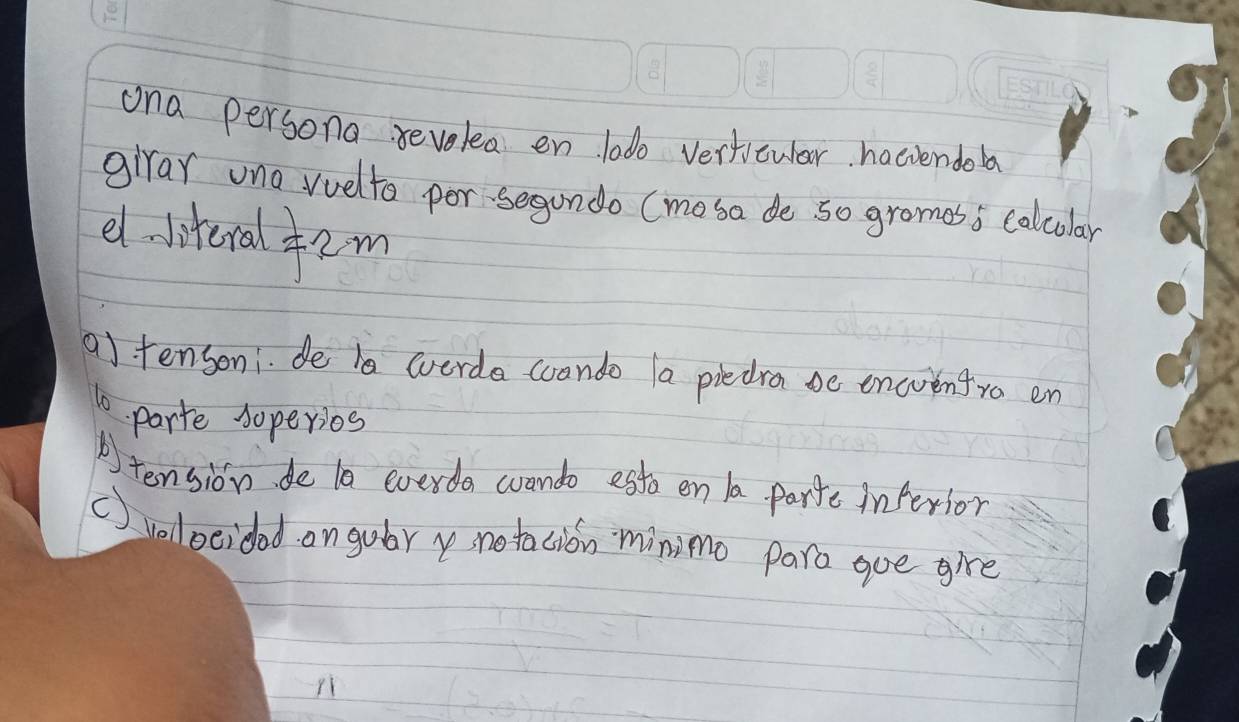 Día Mes Año ESTILO
una persona revolea en lado verticular haciendola
girar una vuelta por segundo (masa de 50 gramos; calcular
el literal r=2 m
a) tensoni. de la cuerda cuando la piedra se encuentra en
la parte superios
b) tensión de la cuerda cuando esta en la parte inferior
c) vellocidad angular y notación minimo para que gire